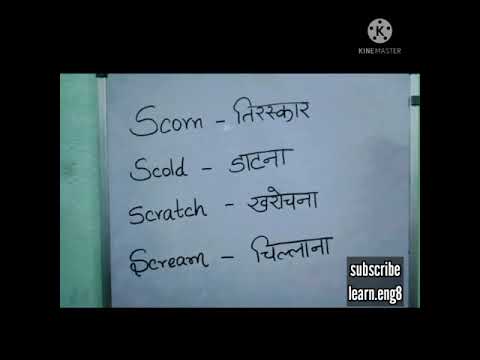 KINEMASTER
Scorn - तिरस्कार
Scold - डाटना
Scratch - खरोचना
Scream - चिल्लाना
subscribe
learn.eng8